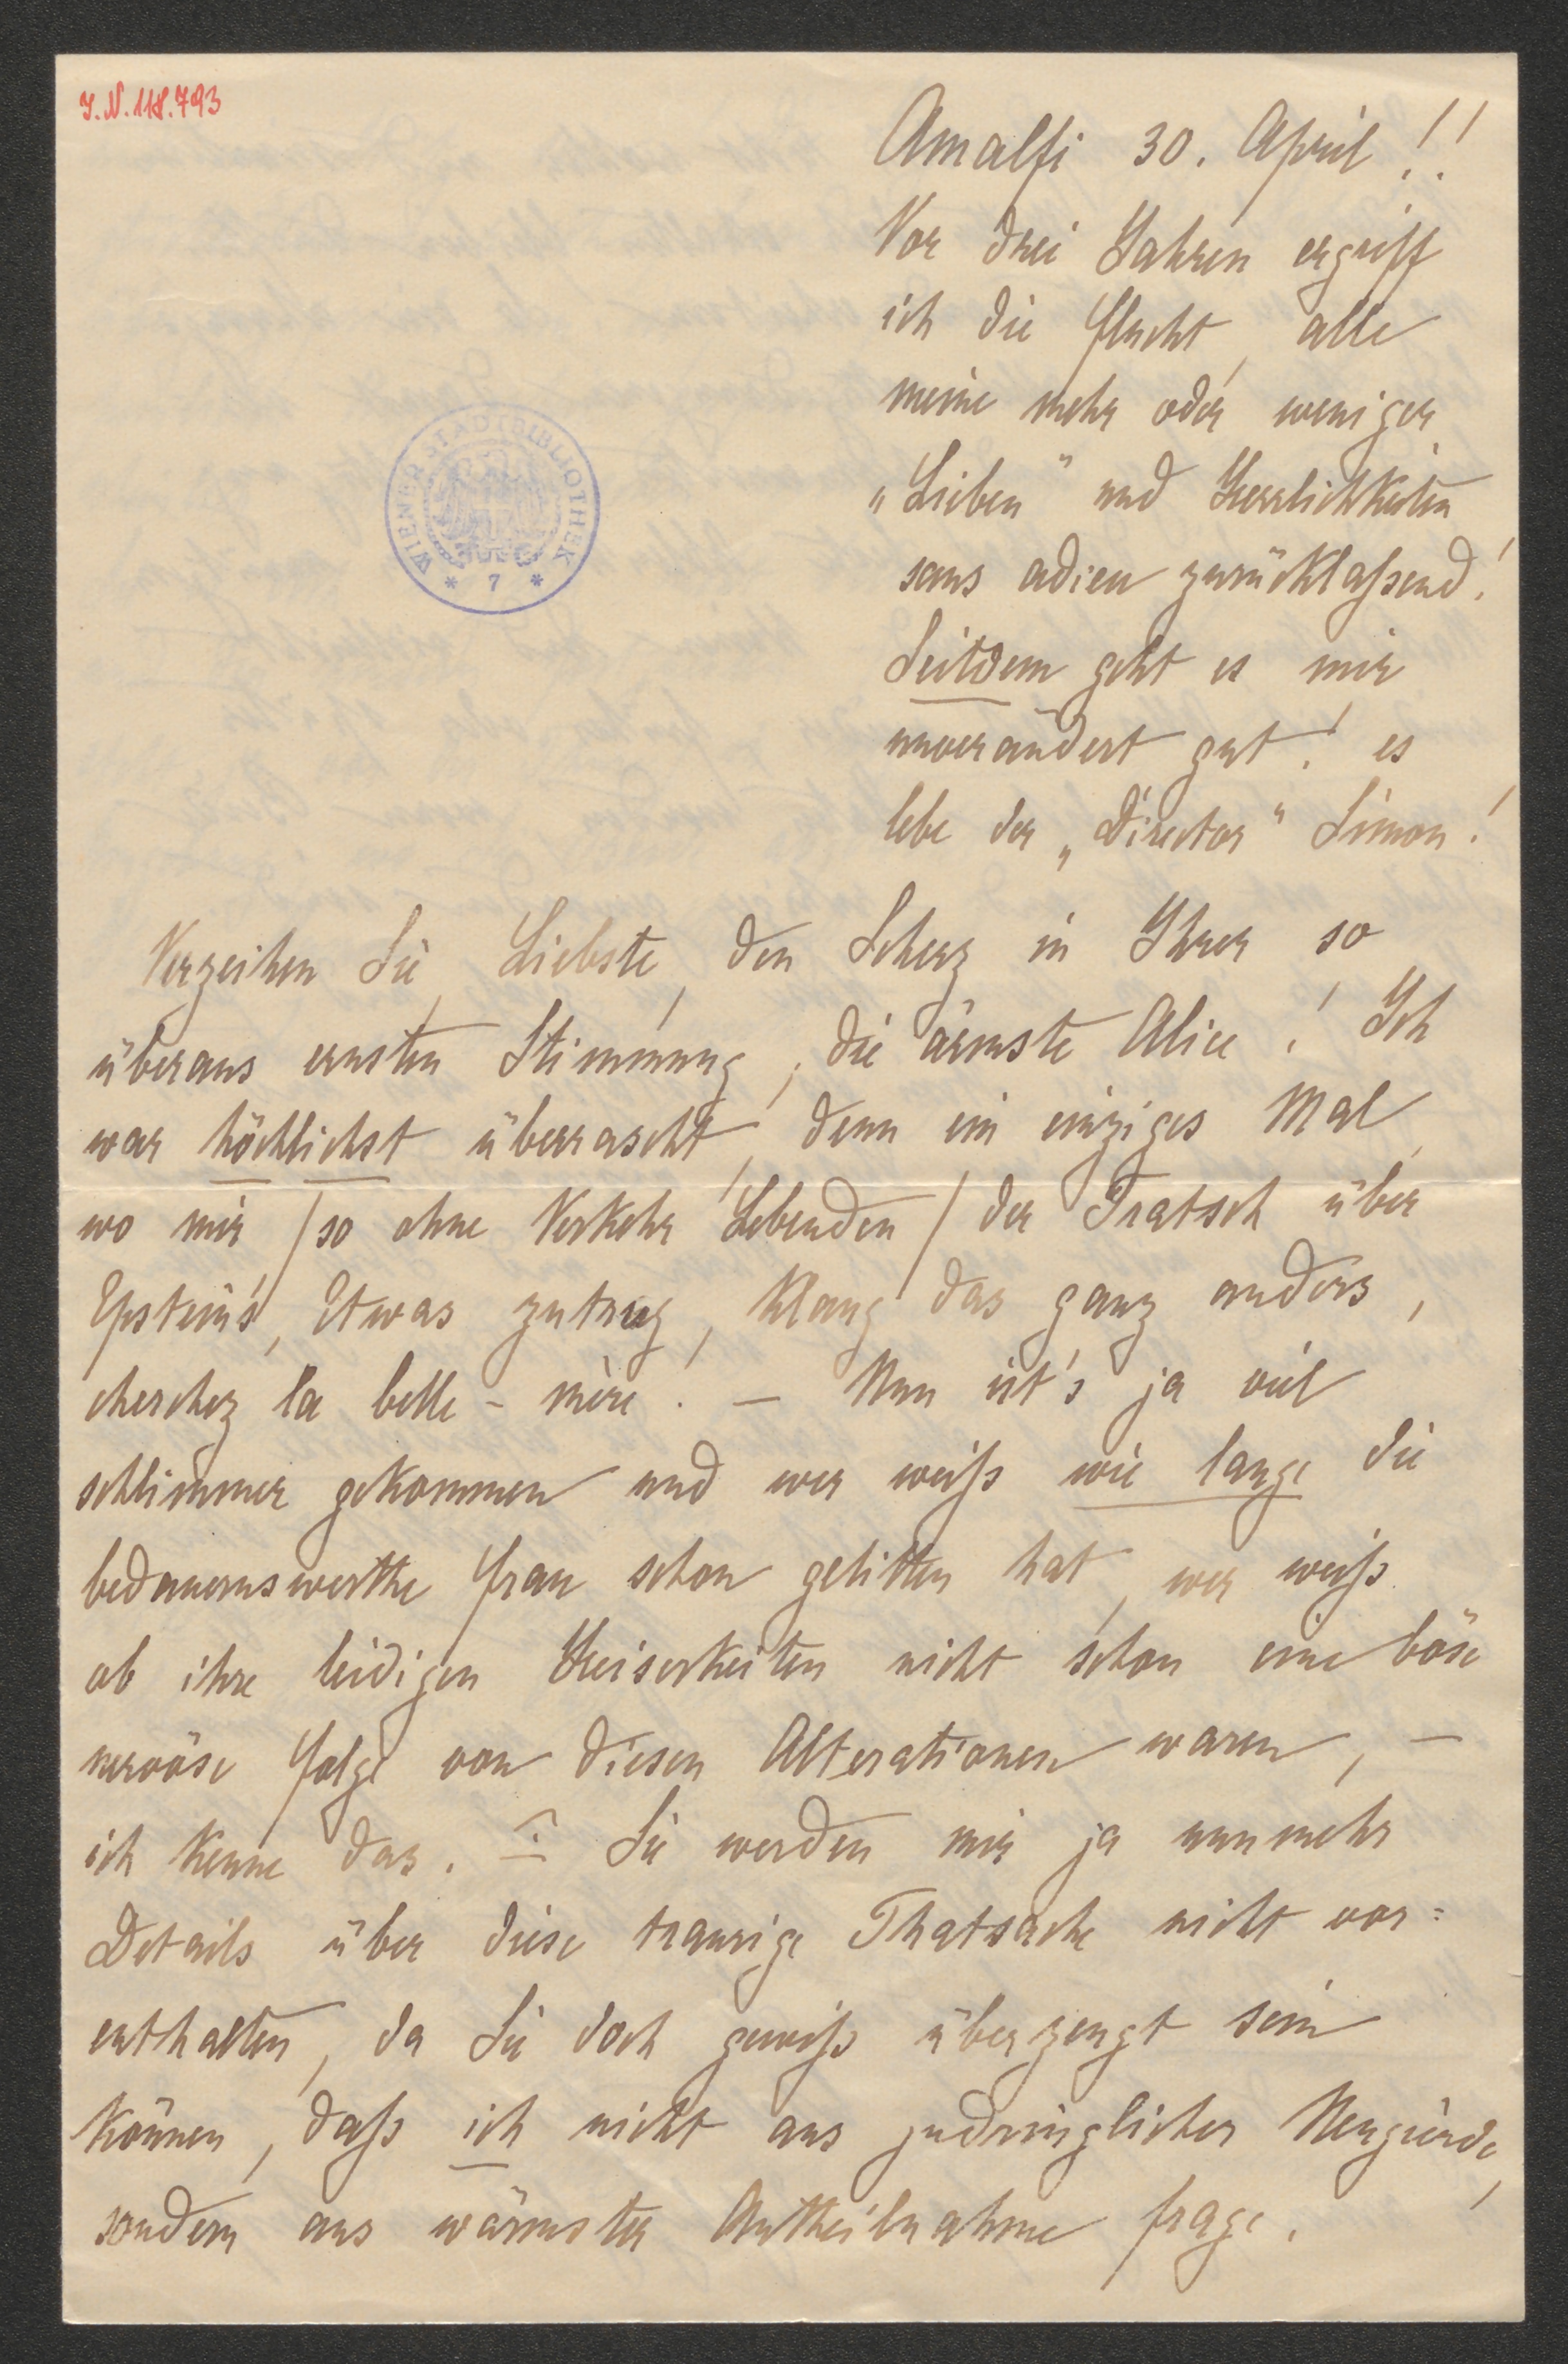 I.N. 118.793
Amalfi 30. April!!
Vor drei Jahren ergriff
ich die Flucht, alle
meine mehr oder weniger
„Lieben" und Herrlichkeiten
sans adieu zurücklaßend!
Seitdem geht es mir
unverändert gut! es
lebe der „Director" Simon!
Verzeihen Sie, Liebste, den Scherz in Ihrer so
überaus ernsten Stimmung, die ärmste Alice! Ich
war höchlichst überrascht, denn ein einziges Mal,
wo mir /so ohne Verkehr Lebenden/ der Tratsch über
Epstein's, Etwas zutrug, klang das ganz anders,
cherchez la belle-mère! – Nun ist's ja viel
schlimmer gekommen und wer weiß wie lange die
bedauernswerthe Frau schon gelitten hat, wer weiß
ob ihre leidigen Heiserkeiten nicht schon eine böse
nervöse Folge von diesen Alterationen waren, –
ich kenne das. – Sie werden mir ja nunmehr
Details über diese traurige Thatsache nicht vor=
enthalten, da Sie doch gewiß überzeugt sein
können, daß ich nicht aus zudringlicher Neugierde,
sondern aus wärmster Antheilnahme frage.
WIENER STADTBIBLIOTHEK
* 7 *